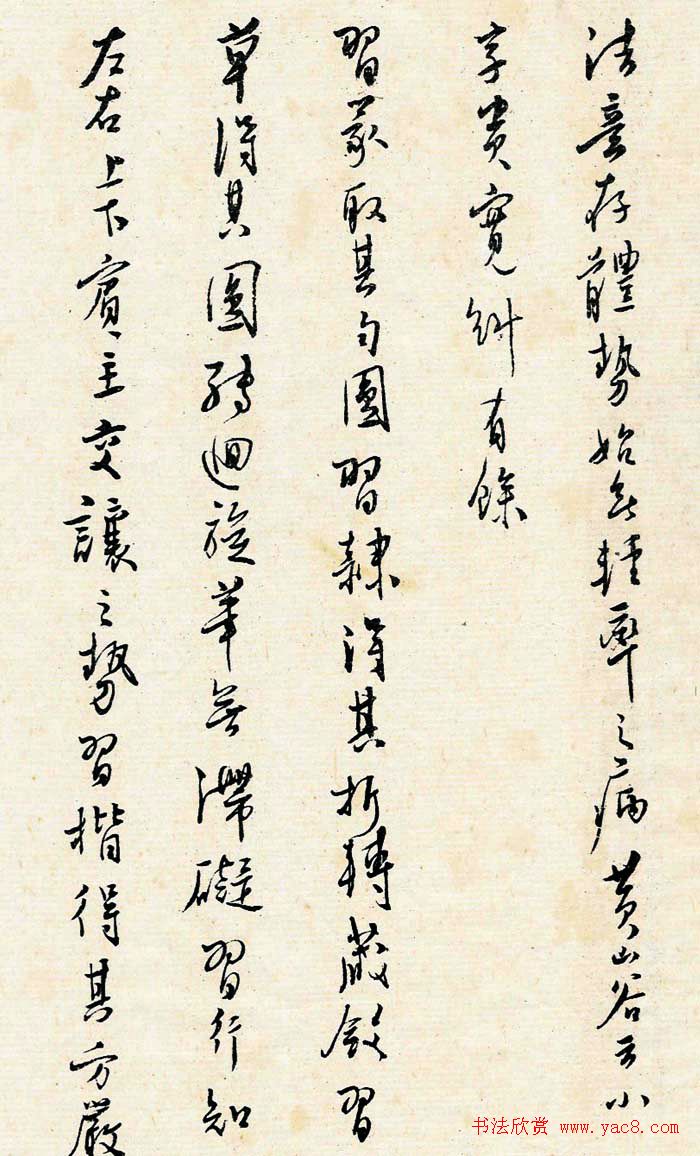 法意存體勢始無輕率之病黃山谷云小
字貴寬綽有餘
習篆取其勻圓習隸得其折轉藏鋒習
草得其圓轉迴旋筆無滯礙習行知
左右上下賓主交讓之勢習楷得其方嚴
书法欣赏 www.yac8.com